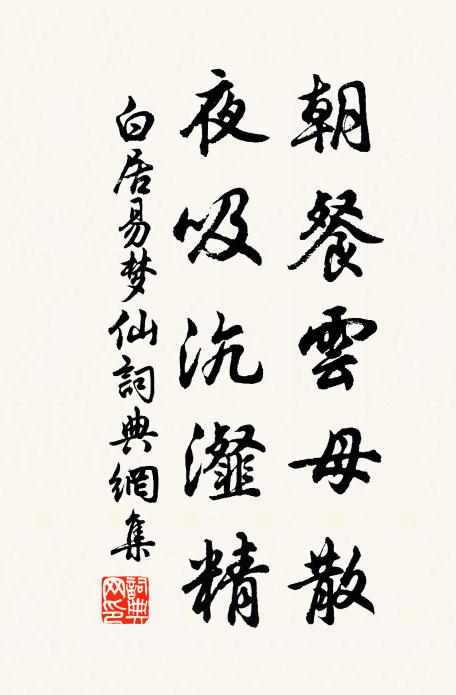 朝餐雲母散
夜吸沆瀣精
白居易梦仙詞典網集
詞典網印